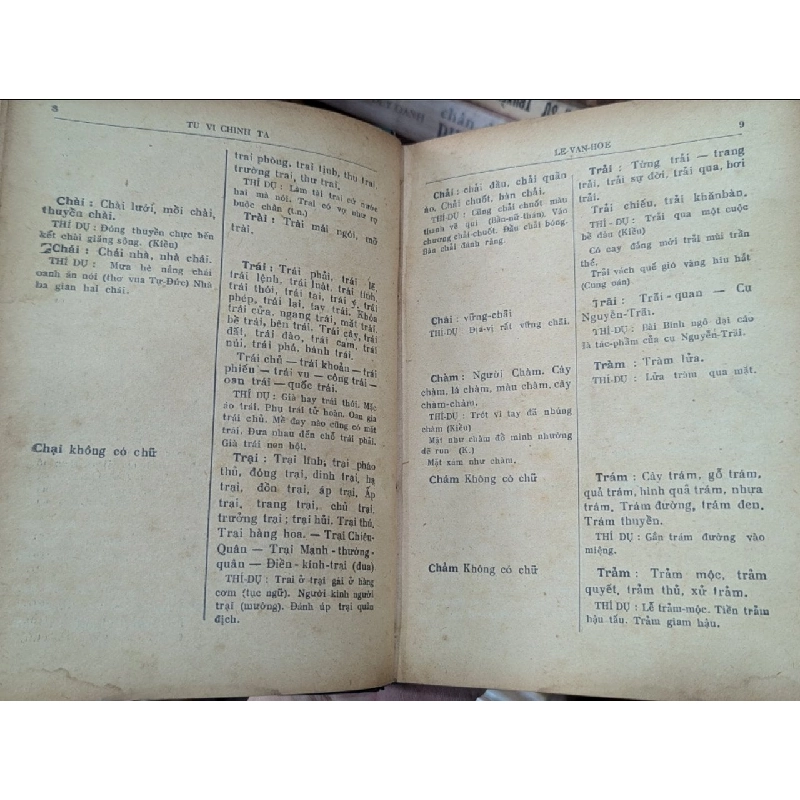 8
TU VI CHINH TA
Chài : Chài lưới, mồi chài,
thuyền chài.
THÍ DỤ : Đóng thuyền chực bến
kết chài giăng sông. (Kiều)
Chái : Chái nhà, nhà chái.
THÍ DỤ : Mưa hè nắng chái
oanh ăn nói (thơ vua Tự-Đức) Nhà
ba gian hai chái.
Chại không có chữ
trai phòng, trai tịnh, thụ trai,
trường trai, thư trai.
THÍ DỤ : Làm tài trai cứ nước
hai mà nói. Trai có vợ như rọ
buộc chân (t.n.)
Trài : Trài mái ngói, thỏ
trài.
Trái : Trái phải, trái lẽ,
trái lệnh, trái luật, trái tính,
trái thói, trái tai, trái ý, trái
phép, trái lại, tay trái. Khóa
trái cửa, ngang trái, mặt trái,
bề trái, bên trái. Trái cây, trái
đất, trái đào, trái cam, trái
núi, trái phá, bánh trái.
Trái chủ — trái khoản — trái
phiếu — trái vụ — công trái —
oan trái — quốc trái.
THÍ DỤ : Già hay trái thói. Mặc
áo trái. Phụ trái tử hoàn. Oan gia
trái chủ. Mề đay nào cũng có mặt
trái. Đưa nhau đến chỗ trái phải.
Già trái non hột.
Trại : Trại lính; trại pháo
thủ, đóng trại, dinh trại, hạ
trại, đồn trại, áp trại. Ấp
trại, trang trại, chủ trại,
trưởng trại ; trại hủi. Trại thú,
Trại hàng hoa. — Trại Chiêu-
Quân — Trại Mạnh-thường-
quân — Điền-kinh-trại (đua)
THÍ-DỤ : Trai ở trại gái ở hàng
cơm (tục ngữ). Người kinh người
trại (mường). Đánh áp trại quân
địch.
LE-VAN-HOE
9
Chải : chải đầu, chải quần
áo, Chải chuốt, bàn chải.
THÍ DỤ : Cũng chải chuốt màu
thanh vẻ quí (bần-nữ-thán). Văn
chương chải-chuốt. Đầu chải bóng.
Bàn chải đánh răng.
Chãi : vững-chãi
THÍ-DỤ : Địa-vị rất vững chãi.
Chàm : Người Chàm. Cây
chàm, lá chàm, màu chàm, cây
chàm-chàm.
THÍ-DỤ : Trót vì tay đã nhúng
chàm (Kiều)
Mặt như chàm đổ mình nhường
dẽ run (K.)
Mặt xám như chàm.
Chám Không có chữ
Chảm Không có chữ
Trải : Từng trải — trang
trải, trải sự đời, trải qua, bơi
trải.
Trải chiếu, trải khăn bàn.
THÍ - DỤ : Trải qua một cuộc
bể dâu (Kiều)
Có cay đắng mới trải mùi trần
thế.
Trải vách quế gió vàng hiu hắt
(Cung oán)
Trãi : Trãi-quan — Cụ
Nguyễn-Trãi.
THÍ-DỤ : Bài Bình ngô đại cáo
là tác-phẩm của cụ Nguyễn-Trãi.
Tràm : Tràm lửa.
THÍ-DỤ : Lửa tràm qua mặt.
Trám : Cây trám, gỗ trám,
quả trám, hình quả trám, nhựa
trám. Trám đường, trám đen.
Trám thuyền.
THÍ DỤ : Gắn trám đường vào
miệng.
Trảm : Trảm mộc, trảm
quyết, trảm thủ, xử trảm.
THÍ DỤ : Lễ trảm-mộc. Tiền trảm
hậu tấu. Trảm giam hậu.